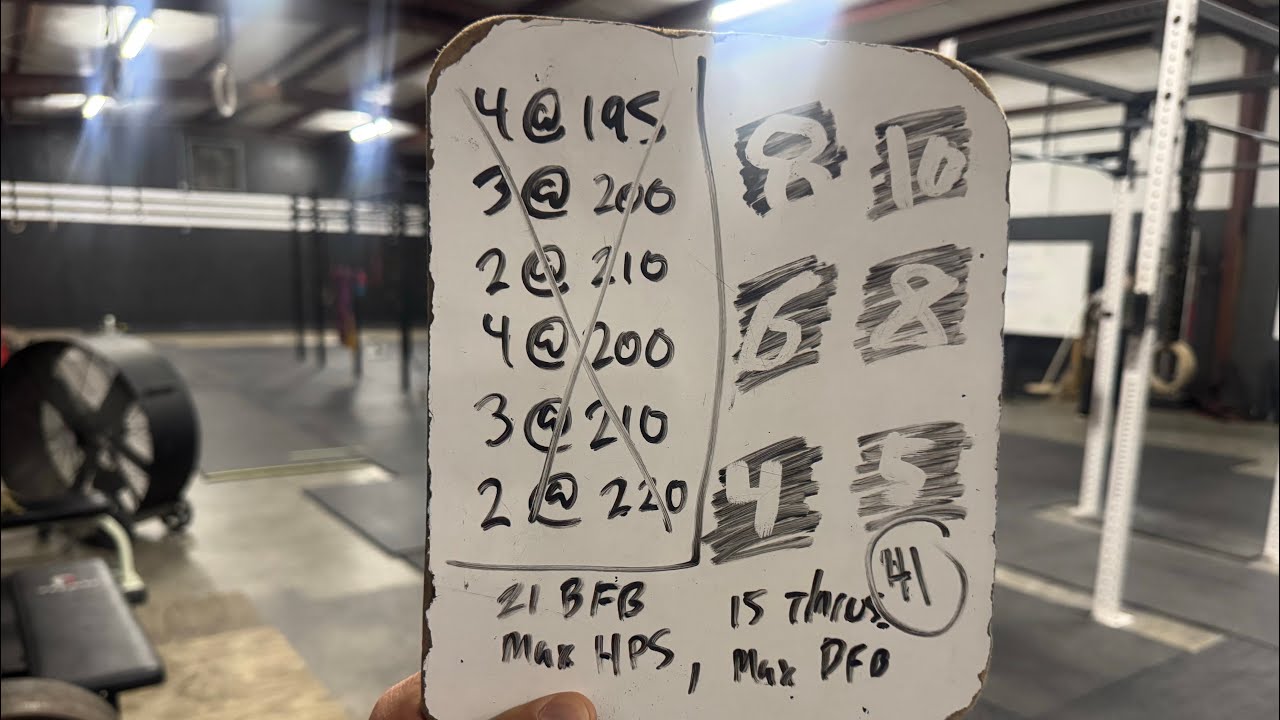 4 @ 195
3 @ 200
2 @ 210
4 @ 200
3 @ 210
2 @ 220
8 10
6 8
4 5
41
21 BFB
Max HPS,
15 Thrus
Max DFO